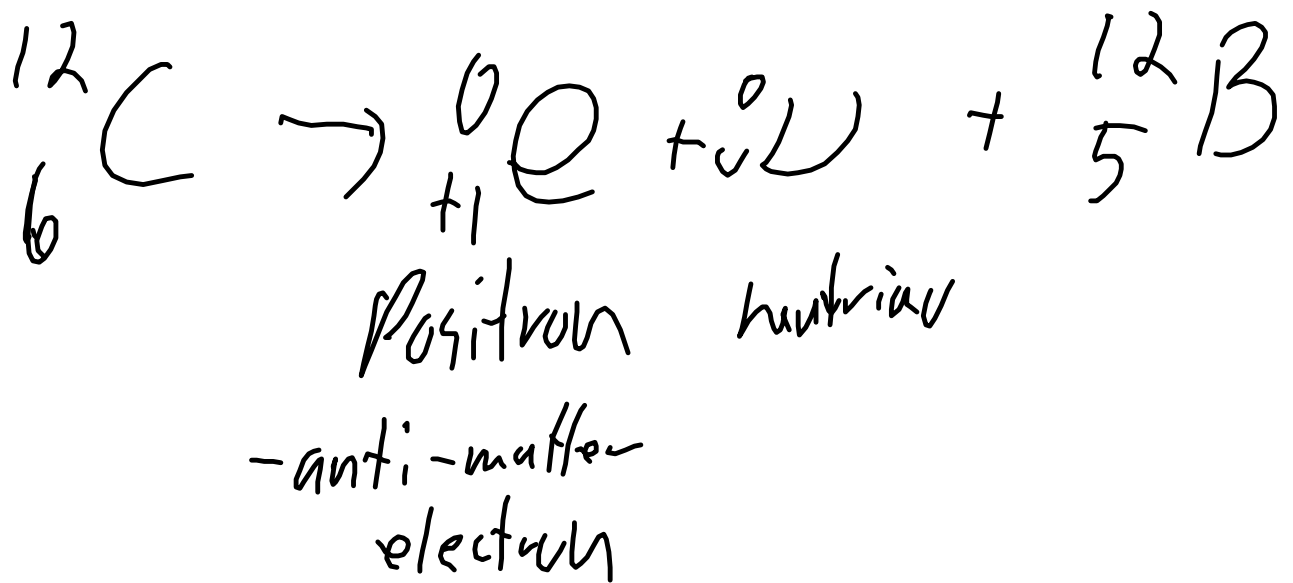 ¹²₆C → ⁰₊₁e + ⁰₀ν + ¹²₅B
Positron nutrino
-anti-matter
electron